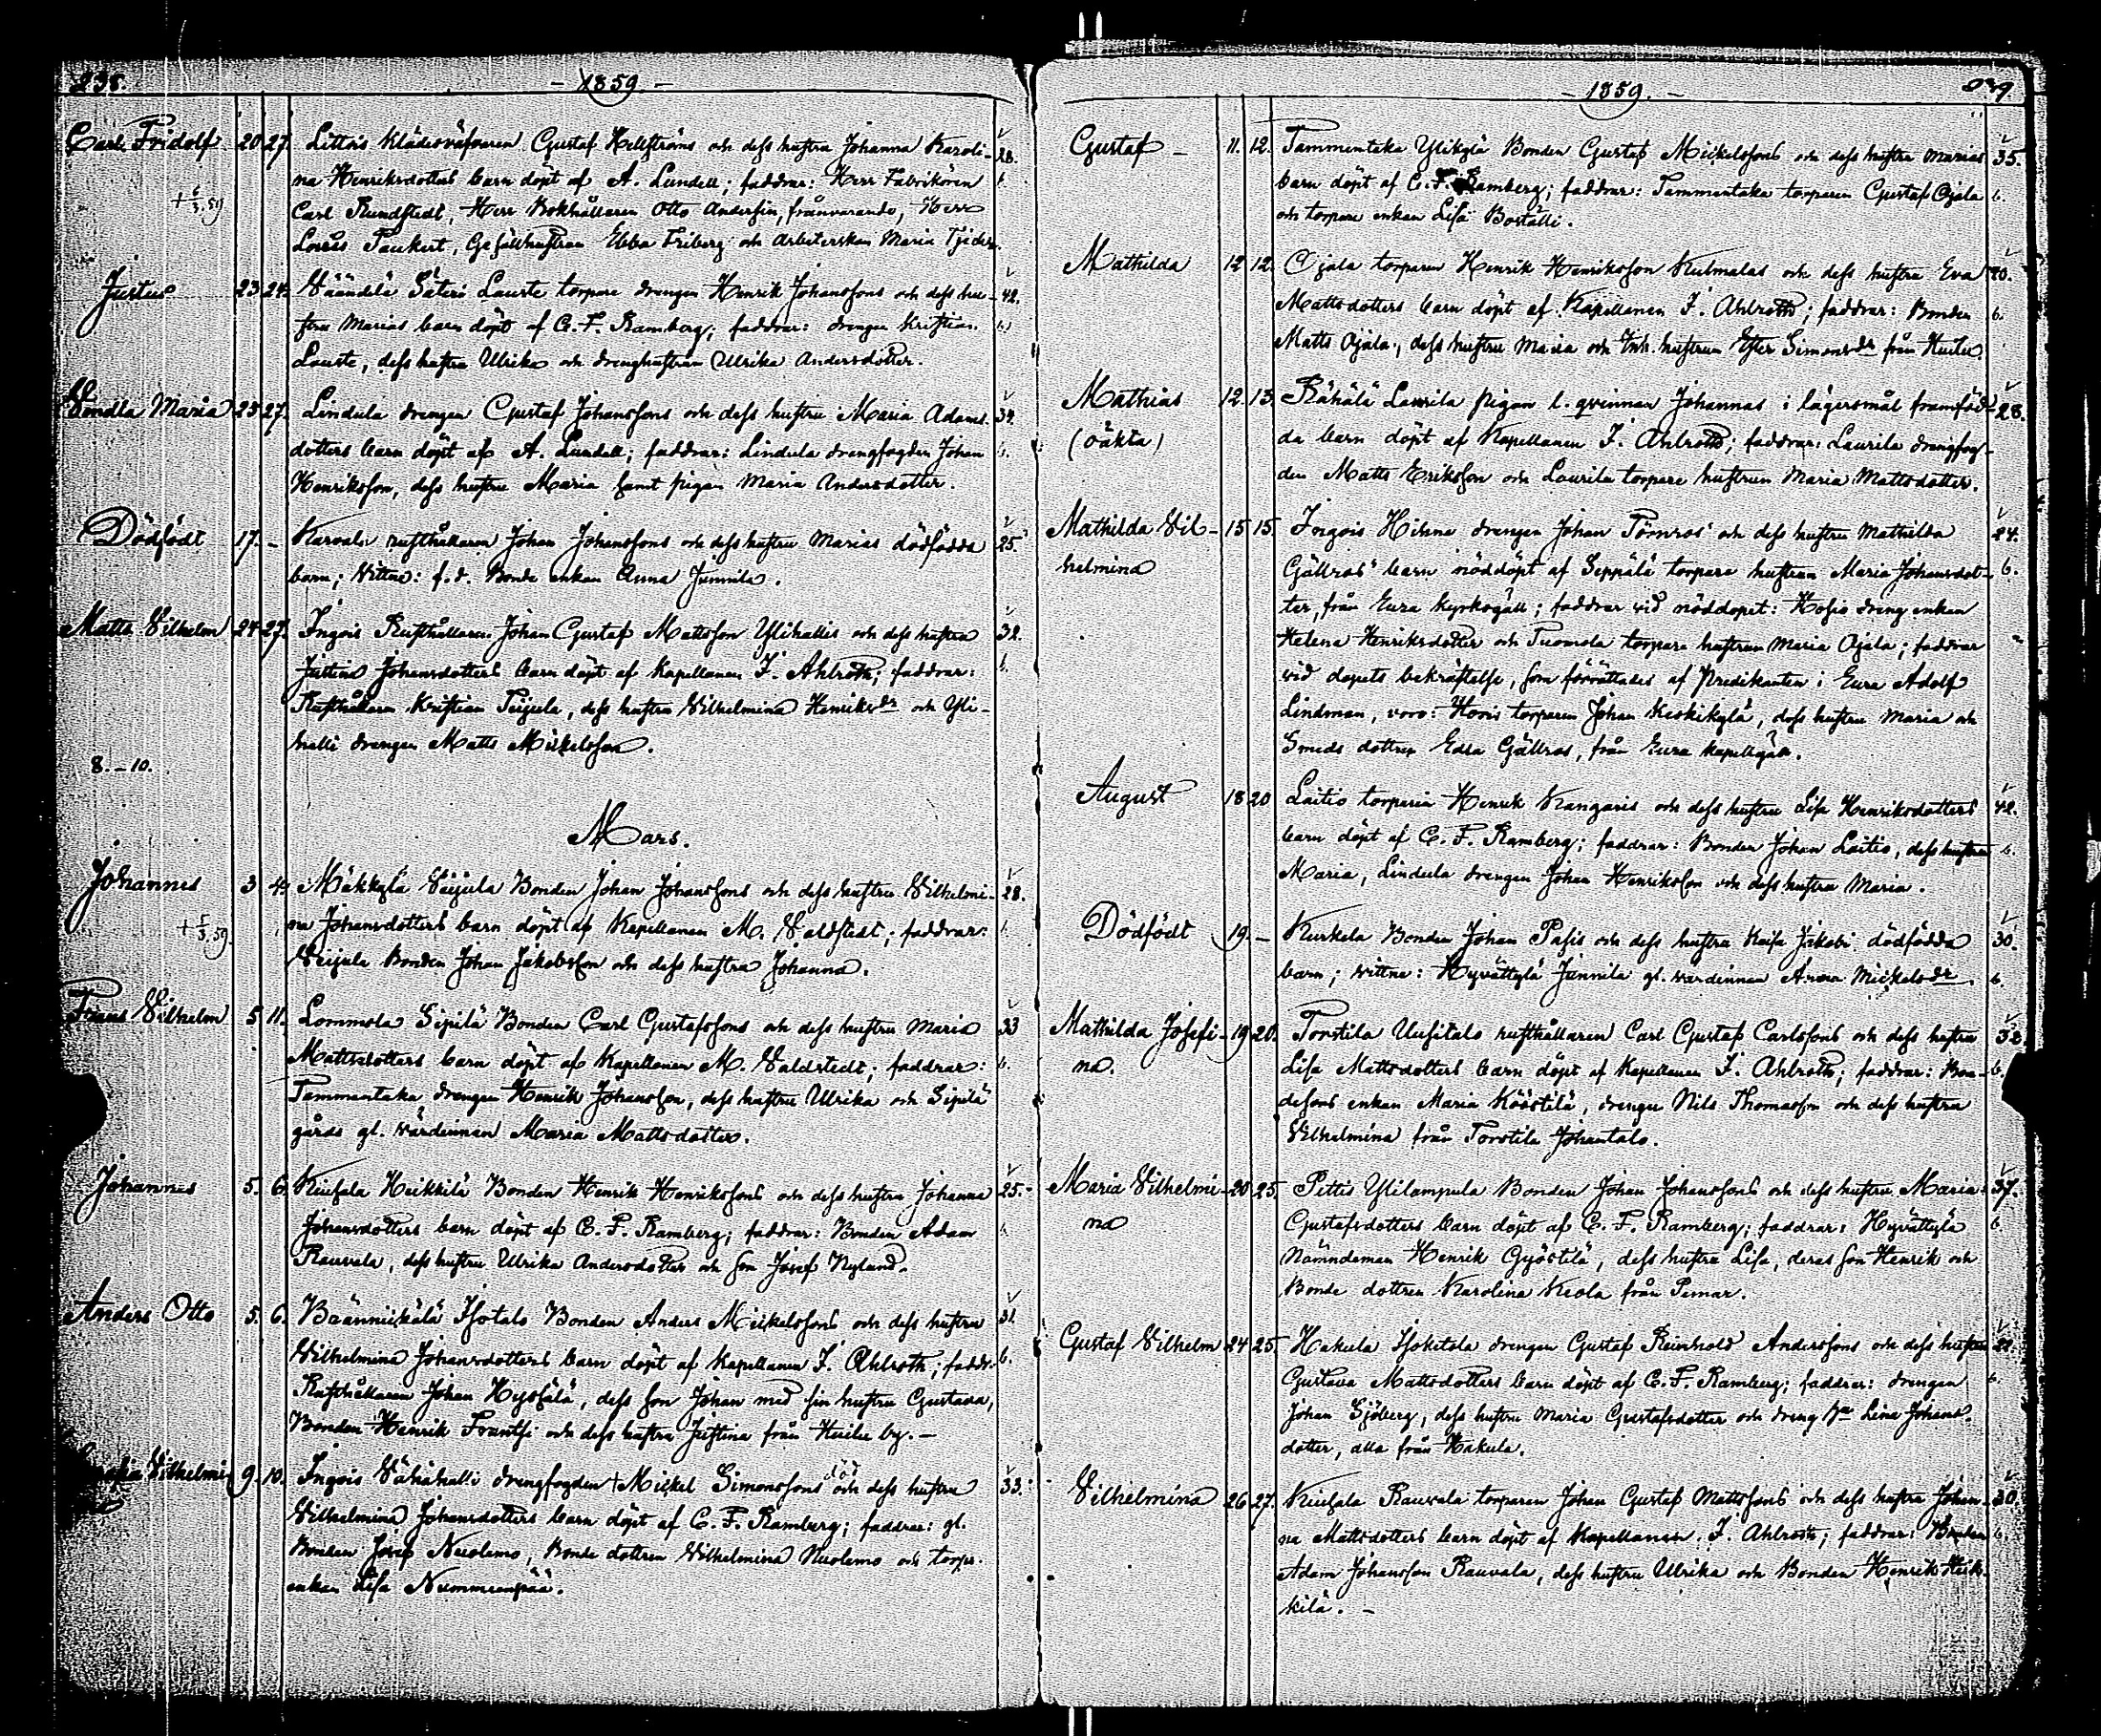 238.
- 1859 -
Carl Fridolf 20 27. Littois Klädesväfvaren Gustaf Hellströms och dess hustru Johanna Karoli- 28.
na Henriksdotters barn döpt af A. Lundell; faddrar: Herr Fabrikören
Carl Rundstedt, Herr Bokhållaren Otto Andersin, frånvarande, Herr
Taukert, Gesällhustrun Ebba Friberg och Arbeterskan Maria
Justus 23 24. Säteri Lauste torpare drengen Henrik Johanssons och dess hu- 42.
stru Marias barn döpt af C. F. Ramberg; faddrar: drengen Kristian
Lauste, dess hustru Ulrika och drenghustrun Ulrika Andersdotter.
Vendla Maria 25 27. Lindula drengen Gustaf Johanssons och dess hustru Maria Adams- 34.
dotters barn döpt af A. Lundell; faddrar: Lindula drengfogden Johan
Henriksson, dess hustru Maria samt pigan Maria Andersdotter.
Dödfödt 17. - Karvala rusthållaren Johan Johanssons och dess hustru Marias dödfödda 25.
barn; Vittne: f. d. Bonde enkan Anna Junnila.
Matts Vilhelm 24 27. Ingois Rusthållaren Johan Gustaf Mattsson Ylihallis och dess hustru 32.
Justina Johansdotters barn döpt af Kapellanen F. Ahlroth; faddrar:
Rusthållaren Kristian Peijula, dess hustru Vilhelmina Henriksdr och Yli-
halli drengen Matts Mickelsson.
8. - 10.
Mars.
Johannes 3 4. Mäkkylä Veijula Bonden Johan Johanssons och dess hustru Vilhelmi- 28.
na Johansdotters barn döpt af Kapellanen M. Valdstedt; faddrar:
Veijula Bonden Johan Jakobsson och dess hustru Johanna.
Frans Vilhelm 5 11. Lommola Sipilä Bonden Carl Gustafssons och dess hustru Maria 33
Mattsdotters barn döpt af Kapellanen M. Valdstedt; faddrar:
Tammentaka drengen Henrik Johansson, dess hustru Ulrika och Sipilä
gårds gl. Värdinnan Maria Mattsdotter.
Johannes 5. 6. Kiusala Heikkilä Bonden Henrik Henrikssons och dess hustru Johanna 25.
Johansdotters barn döpt af C. F. Ramberg; faddrar: Bonden Adam
Rauvala, dess hustru Ulrika Andersdotter och son Josef Nylund.
Anders Otto 5. 6. Isotalo Bonden Anders Mickelssons och dess hustru 31.
Vilhelmina Johansdotters barn döpt af Kapellanen F. Ahlroth; faddr.
Rusthållaren Johan dess son Johan med sin hustru Gustava,
Bonden Henrik Frantsi och dess hustru Justina från Huilu by. -
Vilhelmi- 9. 10. Ingois Vähähalli drengfogden Mickel Simonssons död och dess hustru 33.
Vilhelmina Johansdotters barn döpt af C. F. Ramberg; faddrar: gl.
Bonden Josef Nuolemo, Bonde dottren Vilhelmina Nuolemo och torpr.
enkan Lisa Nummenpää.
1859. -
239.
Gustaf - 11. 12. Tammentaka Ylikylä Bonden Gustaf Mickelssons och dess hustru Marias 35.
barn döpt af C. F. Ramberg; faddrar: Tammentaka torparen Gustaf Ojala 6.
och torpare enkan Lisa Boställi.
Mathilda 12 12. Ojala torparen Henrik Henriksson Kulmalas och dess hustru Eva 20.
Mattsdotters barn döpt af Kapellanen F. Ahlroth; faddrar: Bonden 6.
Matts Ojala, dess hustru Maria och Inh. hustrun Ester Simonsdr från Huilu
Mathias 12. 13. Rähälä Laurila pigan l. qvinnan Johannas i lägersmål framföd- 28.
(oäkta) da barn döpt af Kapellanen F. Ahlroth; faddrar: Laurila drengfog-
den Matts Eriksson och Laurila torpare hustrun Maria Mattsdotter.
Mathilda Vil- 15 15. Ingois Hihna drengen Johan Törnros och dess hustru Mathilda 24.
helmina Gällros' barn nöddöpt af Seppälä torpare hustrun Maria Johansdot- 6.
ter, från Eura Kyrkogäll; faddrar vid nöddopet: dreng enkan
Helena Henriksdotter och Tuomola torpare hustrun Maria Ojala; faddrar
vid dopets bekräftelse, som förrättades af Predikanten i Eura Adolf
Lindman, voro: torparen Johan Keskikylä, dess hustru Maria och
Smeds dottren Edla Gällros, från Eura Kapellgäll.
August 18 20 Laitis torparen Henrik Kangaris och dess hustru Lisa Henriksdotters 42.
barn döpt af C. F. Ramberg; faddrar: Bonden Johan Laitis, dess hustru 6.
Maria, Lindula drengen Johan Henriksson och dess hustru Maria.
Dödfödt 19. - Kurkela Bonden Johan Pasis och dess hustru Kaisa Jakobi dödfödda 30.
barn; vittne: Hyvättylä Junnila gl. värdinnan Anna Mickelsdr. 6.
Mathilda Josefi- 19 20. Torstila Uusitalo rusthållaren Carl Gustaf Carlssons och dess hustru 32.
na. Lisa Mattsdotters barn döpt af Kapellanen F. Ahlroth; faddrar: Bon- 6.
desons enkan Maria Köörtilä, drengen Nils Thomasson och dess hustru
Vilhelmina från Torstila Johantalo.
Maria Vilhelmi- 20 25. Pettis Ylilampula Bonden Johan Johanssons och dess hustru Maria 37.
na Gustafsdotters barn döpt af C. F. Ramberg; faddrar: Hyvättylä 6.
Nämndeman Henrik Gyöstilä, dess hustru Lisa, deras son Henrik och
Bonde dottren Karolina Keola från Pemar.
Gustaf Vilhelm 24 25. Hakula Isokitola drengen Gustaf Reinhold Anderssons och dess hustru 22.
Gustava Mattsdotters barn döpt af C. F. Ramberg; faddrar: drengen 6.
Johan Sjöberg, dess hustru Maria Gustafsdotter och dreng Lina Johans-
dotter, alla från Hakula.
Vilhelmina 26 27. Kiusala Rauvala torparen Johan Gustaf Mattssons och dess hustru Johan- 30.
na Mattsdotters barn döpt af Kapellanen F. Ahlroth; faddrar: Bonden 6.
Adam Johansson Rauvala, dess hustru Ulrika och Bonden Henrik Heik-
kilä. -